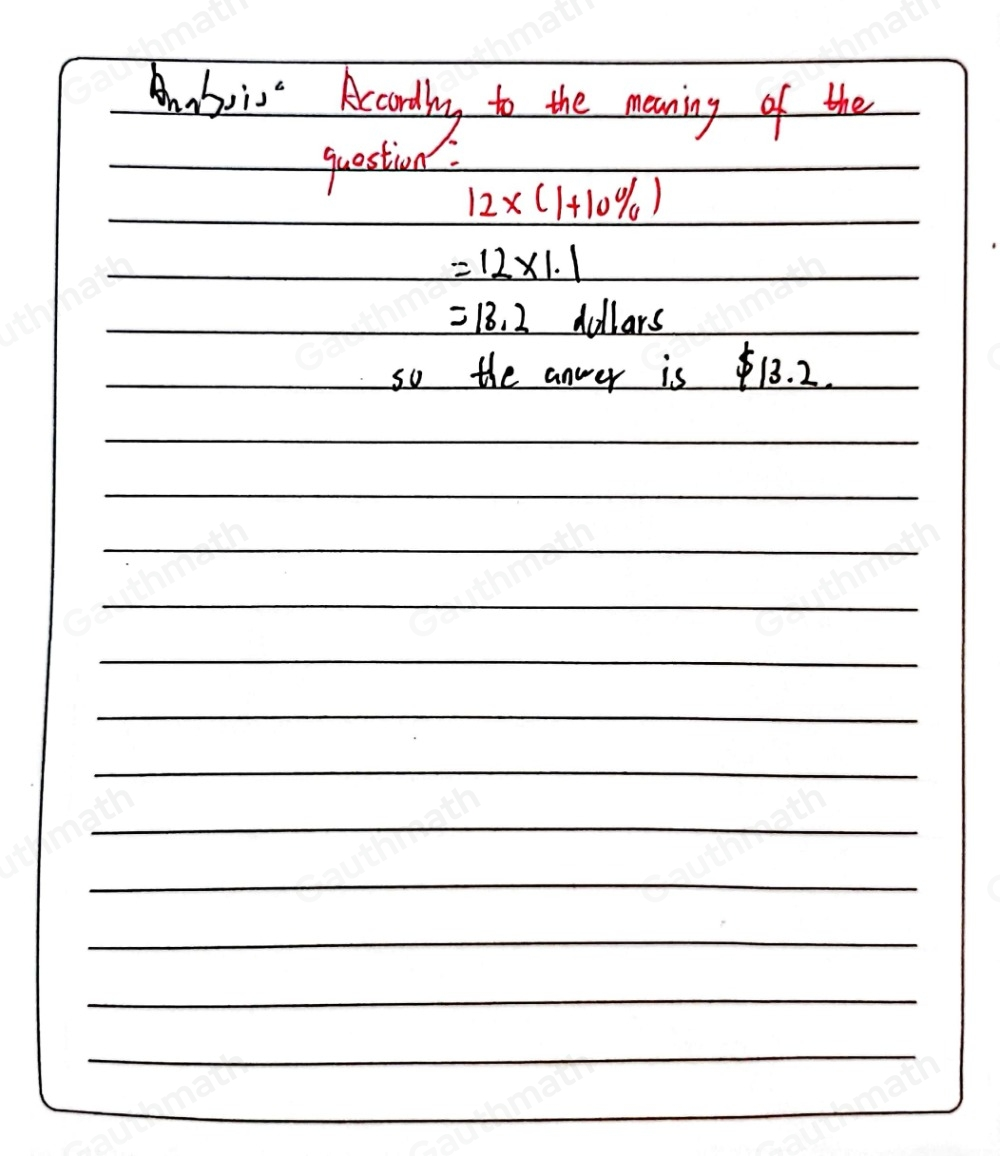 Analysis: According to the meaning of the
question:
12×(1+10%)
=12×1.1
=13.2 dollars
so the anwer is $13.2.
Gauthmath